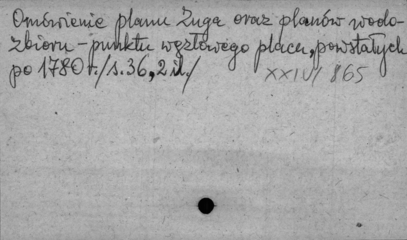 Omówienie planu Zuga oraz planów wodo-
zbioru - punktu węzłowego placu, powstałych
po 1780 r. /s. 36, 2 il./
XXIV/ 865